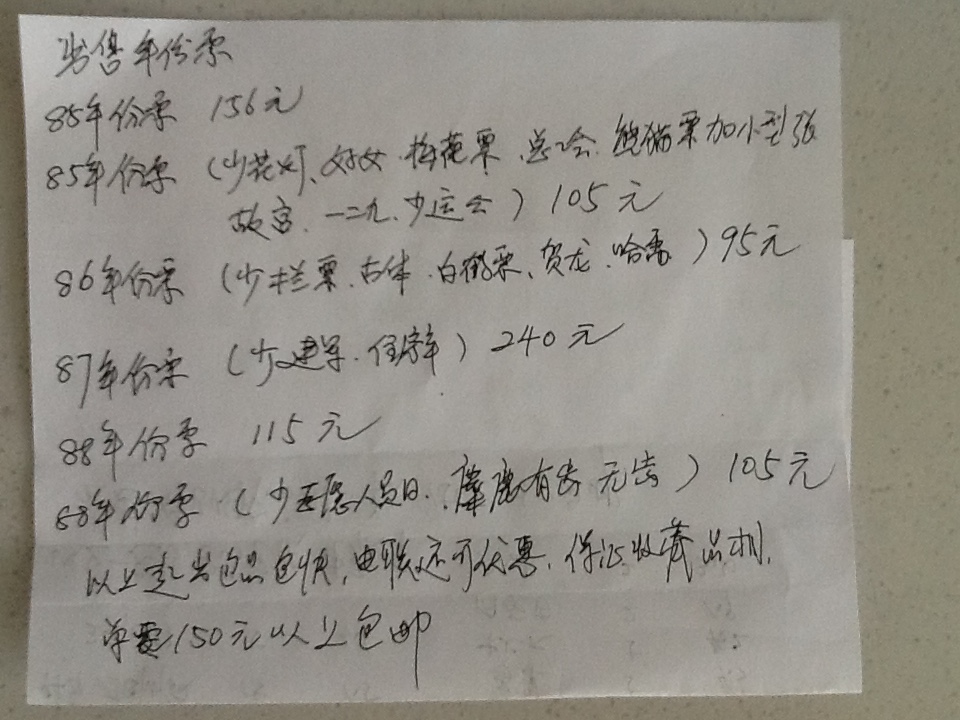 出售年份票
85年份票 156元
85年份票 (少花灯、妇女、梅花票、总工会、熊猫票加小型张
故宫、一二九、少运会) 105元
86年份票 (少兰票、古体、白鹤票、贺龙、哈雷) 95元
87年份票 (少建军、住房年) 240元
88年份票 115元
88年份票 (少残人员日、麋鹿有齿无齿) 105元
以上起出包品包快,电联还可优惠、保证收藏品相,
单需150元以上包邮